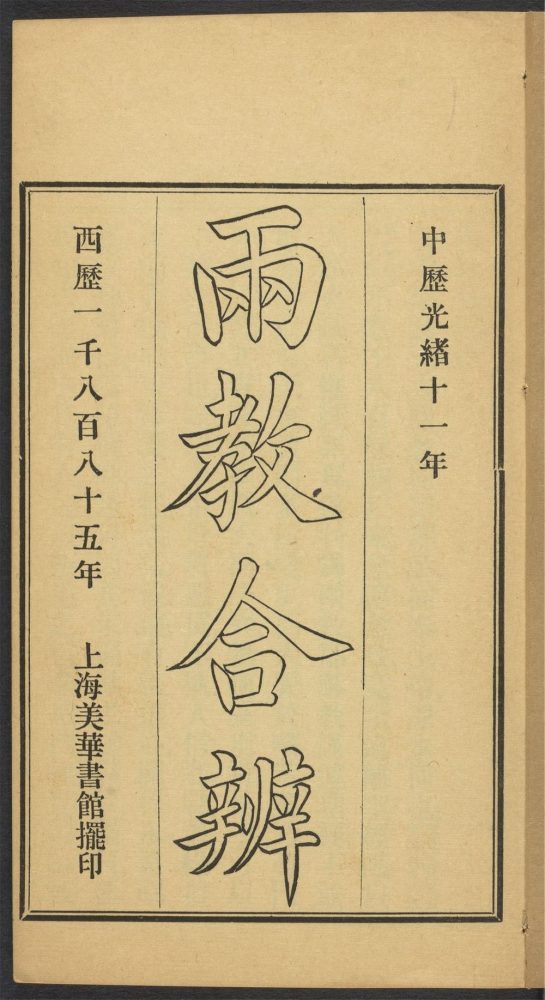 中歷光緖十一年
兩教合辨
西歷一千八百八十五年 上海美華書館擺印